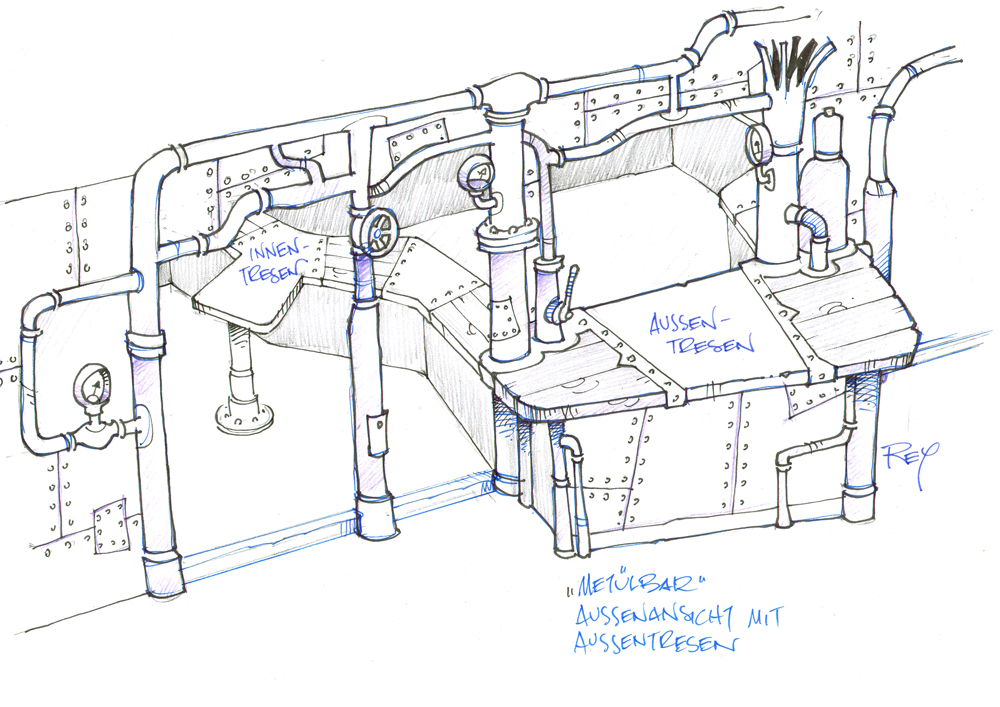 INNEN-
TRESEN
AUSSEN-
TRESEN
REY
"METÜLBAR"
AUSSENANSICHT MIT
AUSSENTRESEN